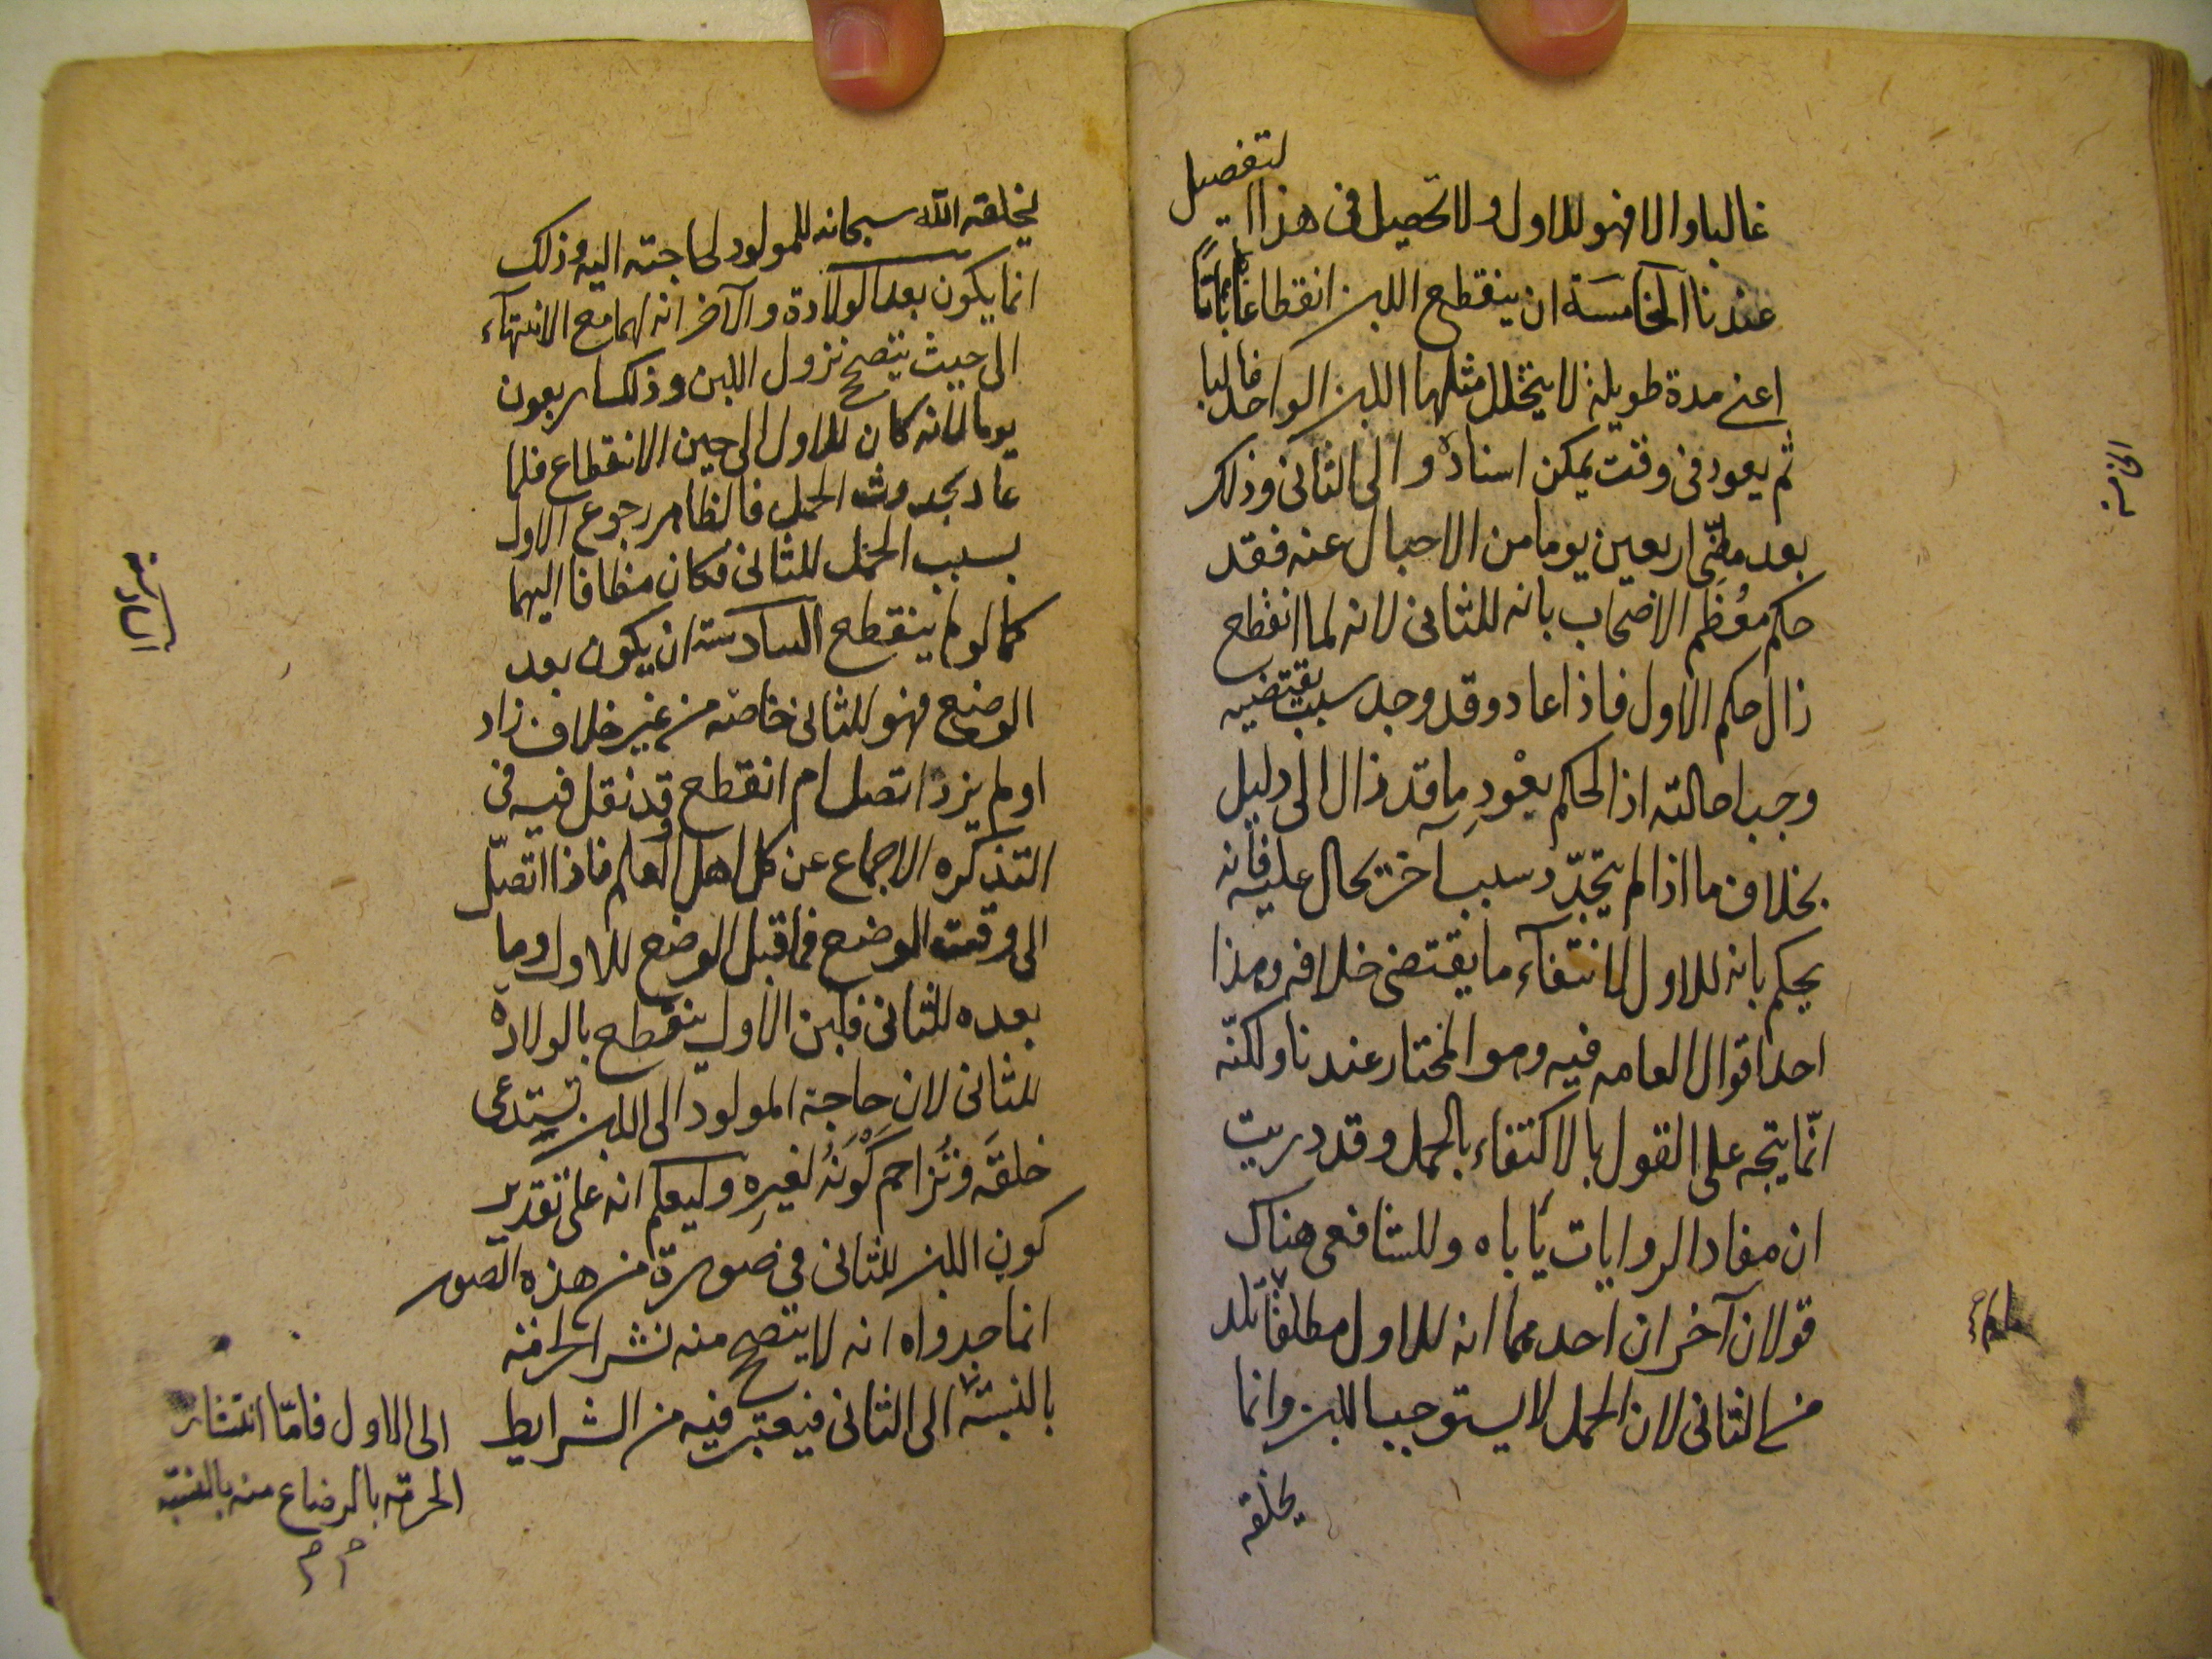 غالبا والا فهو للاول ولا تحصيل فى هذا التفصيل
عندنا الخامسة ان ينقطع اللبن انقطاعا باتا
اعنى مدة طويلة لا يتخلل مثلها اللبن الواحد غالبا
ثم يعود فى وقت يمكن اسناده الى الثانى وذلك
بعد مضى اربعين يوما من الاحبال عنه فقد
حكم معظم الاصحاب بانه للثانى لانه لما انقطع
زال حكم الاول فاذا عاد وقد وجد سبب يقتضيه
وجب احالته اذ الحكم بعود ما قد زال الى دليل
بخلاف ما اذا لم يتجدد سبب آخر يحال عليه فانه
يحكم بانه للاول لانتفآء ما يقتضى خلافه وهذا
احد اقوال العامه فيه وهو المختار عندنا ولكنّه
انّما يتجه على القول بالاكتفاء بالحمل وقد دريت
ان مفاد الروايات يأباه وللشافعى هناك
قولان آخران احدهما انه للاول مطلقا ما لم تلد
من الثانى لان الحمل لا يستوجب اللبن وانما
يخلقه
الخامسة
يخلقه الله سبحانه للمولود لحاجته اليه وذلك
انما يكون بعد الولادة والآخر انه لهما مع الانتهآء
الى حيث يتصحح نزول اللبن وذلك اربعون
يوما لانه كان للاول الى حين الانقطاع فلما
عاد بحدوث الحمل فالظاهر رجوع الاول
بسبب الحمل للثانى فكان مضافا اليهما
كما لو لم ينقطع السادسة ان يكون بعد
الوضع فهو للثانى خاصة من غير خلاف زاد
او لم يزد اتصل ام انقطع وقد نقل فيه فى
التذكره الاجماع عن كل اهل العلم فاذا اتصل
الى وقت الوضع فما قبل الوضع للاول وما
بعده للثانى فلبن الاول ينقطع بالولادة
للثانى لان حاجة المولود الى اللبن تستدعى
خلقه وتزاحم كونه لغيره وليعلم انه على تقدير
كون اللبن للثانى فى صورة من هذه الصور
انما جدواه انه لا يتصحح منه نشر الحرمة
بالنسبة الى الثانى فيعتبر فيه من الشرايط
السادسة
الى الاول فامّا انتشار
الحرمة بالرضاع منه بالنسبة